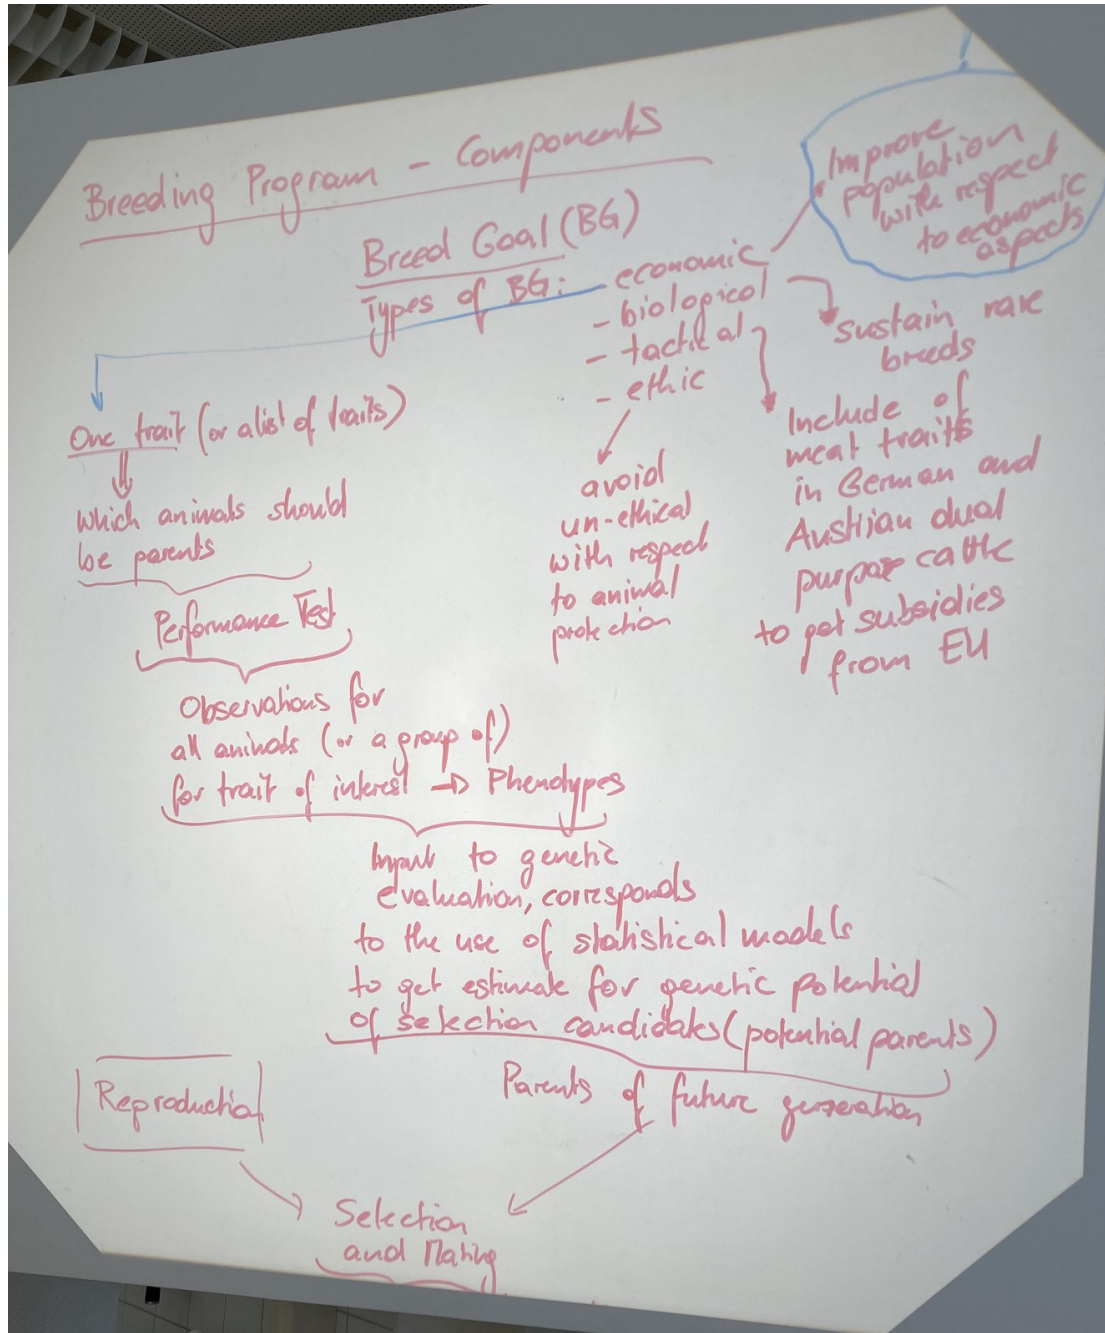 Breeding Program - Components
Improve
population
with respect
to economic
aspects
!
Breed Goal (BG)
Types of BG: - economic
- biological
- tactical
- ethic
sustain rare
breeds
Include of
meat traits
in German and
Austrian dual
purpose cattle
to get subsidies
from EU
avoid
un-ethical
with respect
to animal
protection
One trait (or a list of traits)
which animals should
be parents
Performance Test
Observations for
all animals (or a group of)
for trait of interest → Phenotypes
Input to genetic
evaluation, corresponds
to the use of statistical models
to get estimate for genetic potential
of selection candidates (potential parents)
Parents of future generation
Reproduction
Selection
and Mating